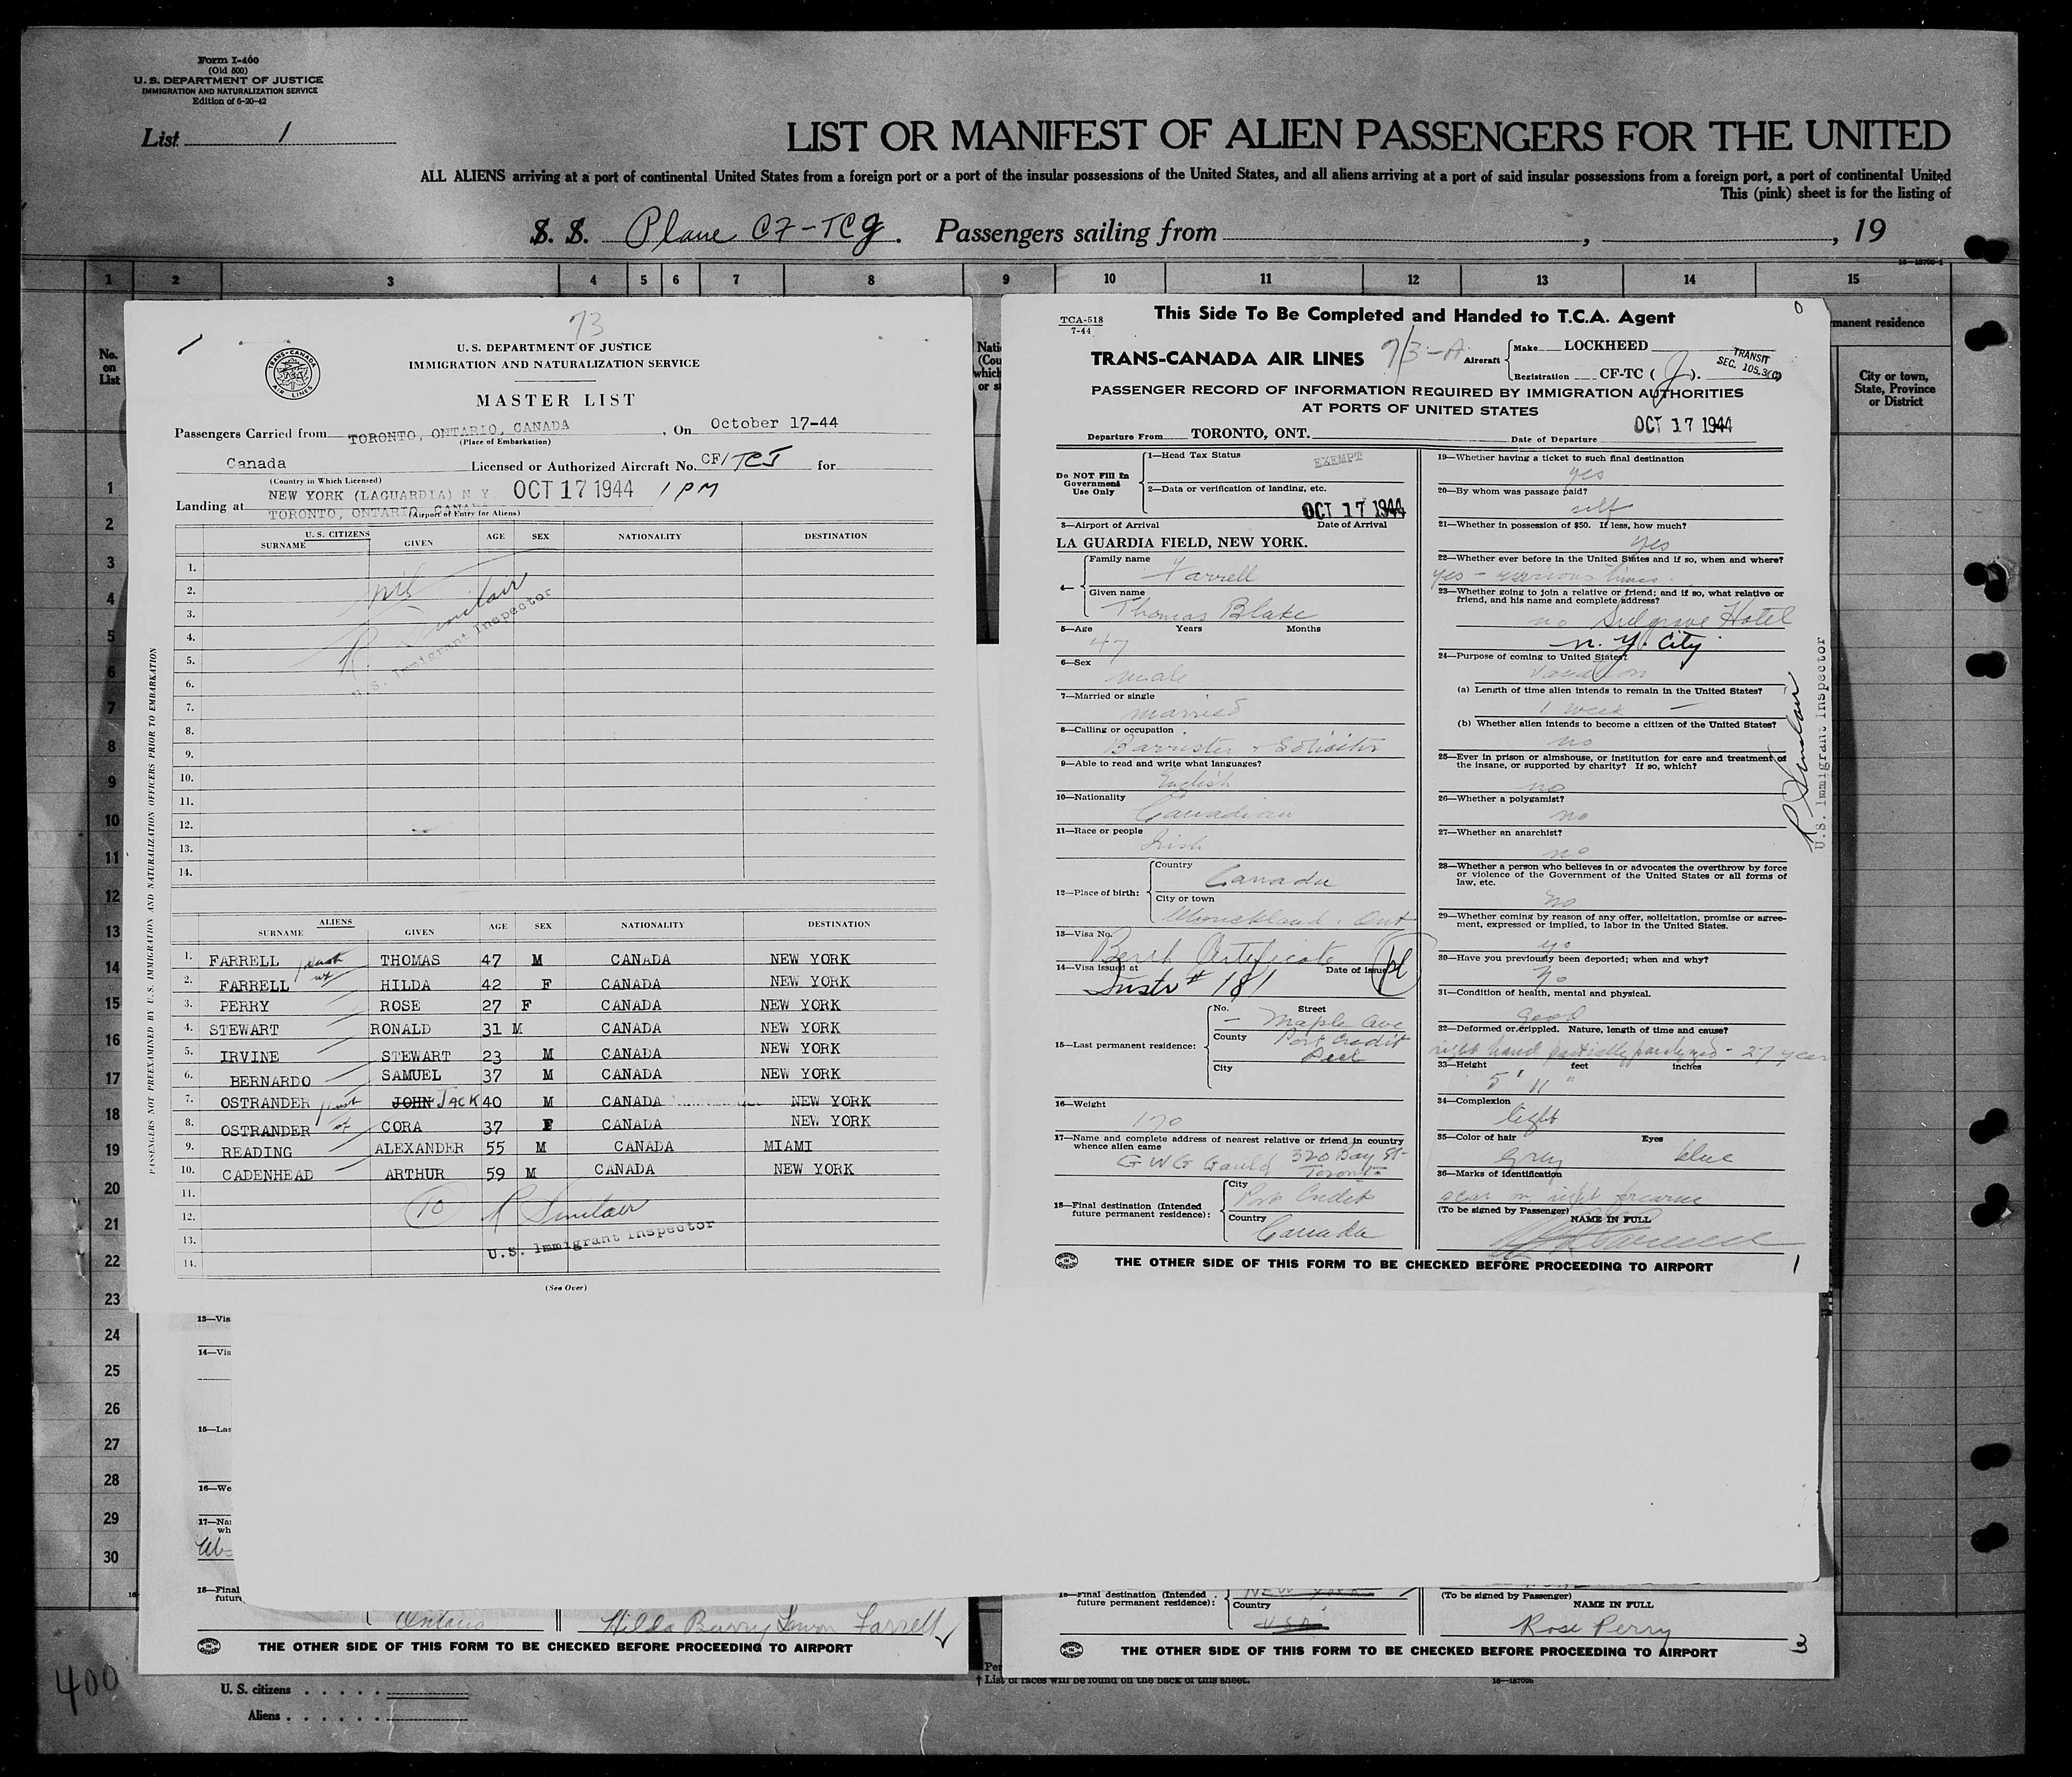 Form I-460
(Old 500)
U. S. DEPARTMENT OF JUSTICE
IMMIGRATION AND NATURALIZATION SERVICE
Edition of 6-20-42
List 1
LIST OR MANIFEST OF ALIEN PASSENGERS FOR THE UNITED
ALL ALIENS arriving at a port of continental United States from a foreign port or a port of the insular possessions of the United States, and all aliens arriving at a port of said insular possessions from a foreign port, a port of continental United
This (pink) sheet is for the listing of
S. S. Plane CF-TCJ. Passengers sailing from , , 19
1 2 3 4 5 6 7 8 9 10 11 12 13 14 15
No. on List
manent residence
City or town, State, Province or District
1
2
3
4
5
6
7
8
9
10
11
12
13
14
15
16
17
18
19
20
21
22
23
24
25
26
27
28
29
30
73
TRANS-CANADA AIR LINES
U. S. DEPARTMENT OF JUSTICE
IMMIGRATION AND NATURALIZATION SERVICE
MASTER LIST
Passengers Carried from TORONTO, ONTARIO, CANADA, On October 17-44
(Place of Embarkation)
Canada Licensed or Authorized Aircraft No. CF/TCJ for
(Country in Which Licensed)
NEW YORK (LAGUARDIA) N Y OCT 17 1944 1 PM
Landing at TORONTO, ONTARIO, CANADA
(Airport of Entry for Aliens)
PASSENGERS NOT PREEXAMINED BY U. S. IMMIGRATION AND NATURALIZATION OFFICERS PRIOR TO EMBARKATION
U. S. CITIZENS
SURNAME GIVEN AGE SEX NATIONALITY DESTINATION
1.
2. nil
3. R. Sinclair
4. U.S. Immigrant Inspector
5.
6.
7.
8.
9.
10.
11.
12.
13.
14.
ALIENS
SURNAME GIVEN AGE SEX NATIONALITY DESTINATION
1. FARRELL THOMAS 47 M CANADA NEW YORK
2. FARRELL HILDA 42 F CANADA NEW YORK
3. PERRY ROSE 27 F CANADA NEW YORK
4. STEWART RONALD 31 M CANADA NEW YORK
5. IRVINE STEWART 23 M CANADA NEW YORK
6. BERNARDO SAMUEL 37 M CANADA NEW YORK
7. OSTRANDER JOHN JACK 40 M CANADA NEW YORK
8. OSTRANDER CORA 37 F CANADA NEW YORK
9. READING ALEXANDER 55 M CANADA MIAMI
10. CADENHEAD ARTHUR 59 M CANADA NEW YORK
11.
12. 10 R Sinclair
13. U.S. Immigrant Inspector
14.
(See Over)
TCA-518
7-44
This Side To Be Completed and Handed to T.C.A. Agent
TRANS-CANADA AIR LINES 73-A Aircraft
Make LOCKHEED
Registration CF-TC (J).
TRANSIT
SEC. 105.3(c)
PASSENGER RECORD OF INFORMATION REQUIRED BY IMMIGRATION AUTHORITIES
AT PORTS OF UNITED STATES
Departure From TORONTO, ONT. Date of Departure OCT 17 1944
Do NOT Fill In
Government
Use Only
1—Head Tax Status EXEMPT
2—Data or verification of landing, etc.
OCT 17 1944
3—Airport of Arrival Date of Arrival
LA GUARDIA FIELD, NEW YORK.
4— Family name Farrell
Given name Thomas Blake
5—Age Years Months
47
6—Sex
male
7—Married or single
married
8—Calling or occupation
Barrister & Solicitor
9—Able to read and write what languages?
English
10—Nationality
Canadian
11—Race or people
Irish
12—Place of birth: Country Canada
City or town Ont
13—Visa No. Birth Certificate
14—Visa issued at Date of issue
Instr # 181
15—Last permanent residence: No. — Street Maple Ave
County Port Credit
Peel
City
16—Weight
170
17—Name and complete address of nearest relative or friend in country
whence alien came
G W G Gauld 320 Bay St-
Toronto
18—Final destination (Intended
future permanent residence): City Port Credit
Country Canada
19—Whether having a ticket to such final destination
yes
20—By whom was passage paid?
self
21—Whether in possession of $50. If less, how much?
yes
22—Whether ever before in the United States and if so, when and where?
yes - various times.
23—Whether going to join a relative or friend; and if so, what relative or
friend, and his name and complete address?
no Sulgrave Hotel
N. Y. City
24—Purpose of coming to United States?
Vacation
(a) Length of time alien intends to remain in the United States?
1 week —
(b) Whether alien intends to become a citizen of the United States?
no
25—Ever in prison or almshouse, or institution for care and treatment of
the insane, or supported by charity? If so, which?
no
26—Whether a polygamist?
no
27—Whether an anarchist?
no
28—Whether a person who believes in or advocates the overthrow by force
or violence of the Government of the United States or all forms of
law, etc.
no
29—Whether coming by reason of any offer, solicitation, promise or agree-
ment, expressed or implied, to labor in the United States.
no
30—Have you previously been deported; when and why?
no
31—Condition of health, mental and physical.
good
32—Deformed or crippled. Nature, length of time and cause?
right hand partially paralyzed - 27 years
33—Height feet inches
5' 11"
34—Complexion
light
35—Color of hair Eyes
Grey blue
36—Marks of identification
scar on right forearm
(To be signed by Passenger)
NAME IN FULL
R Sinclair
U.S. Immigrant Inspector
THE OTHER SIDE OF THIS FORM TO BE CHECKED BEFORE PROCEEDING TO AIRPORT 1
13—Vis
14—Vis
15—Las
16—We
17—Na
wh
18—Final
futur
Ontario Hilda Farrell
THE OTHER SIDE OF THIS FORM TO BE CHECKED BEFORE PROCEEDING TO AIRPORT
18—Final destination (Intended
future permanent residence): NEW YORK
Country USA
(To be signed by Passenger)
NAME IN FULL
Rose Perry
THE OTHER SIDE OF THIS FORM TO BE CHECKED BEFORE PROCEEDING TO AIRPORT 3
400
U. S. citizens
Aliens
† List of races will be found on the back of this sheet.